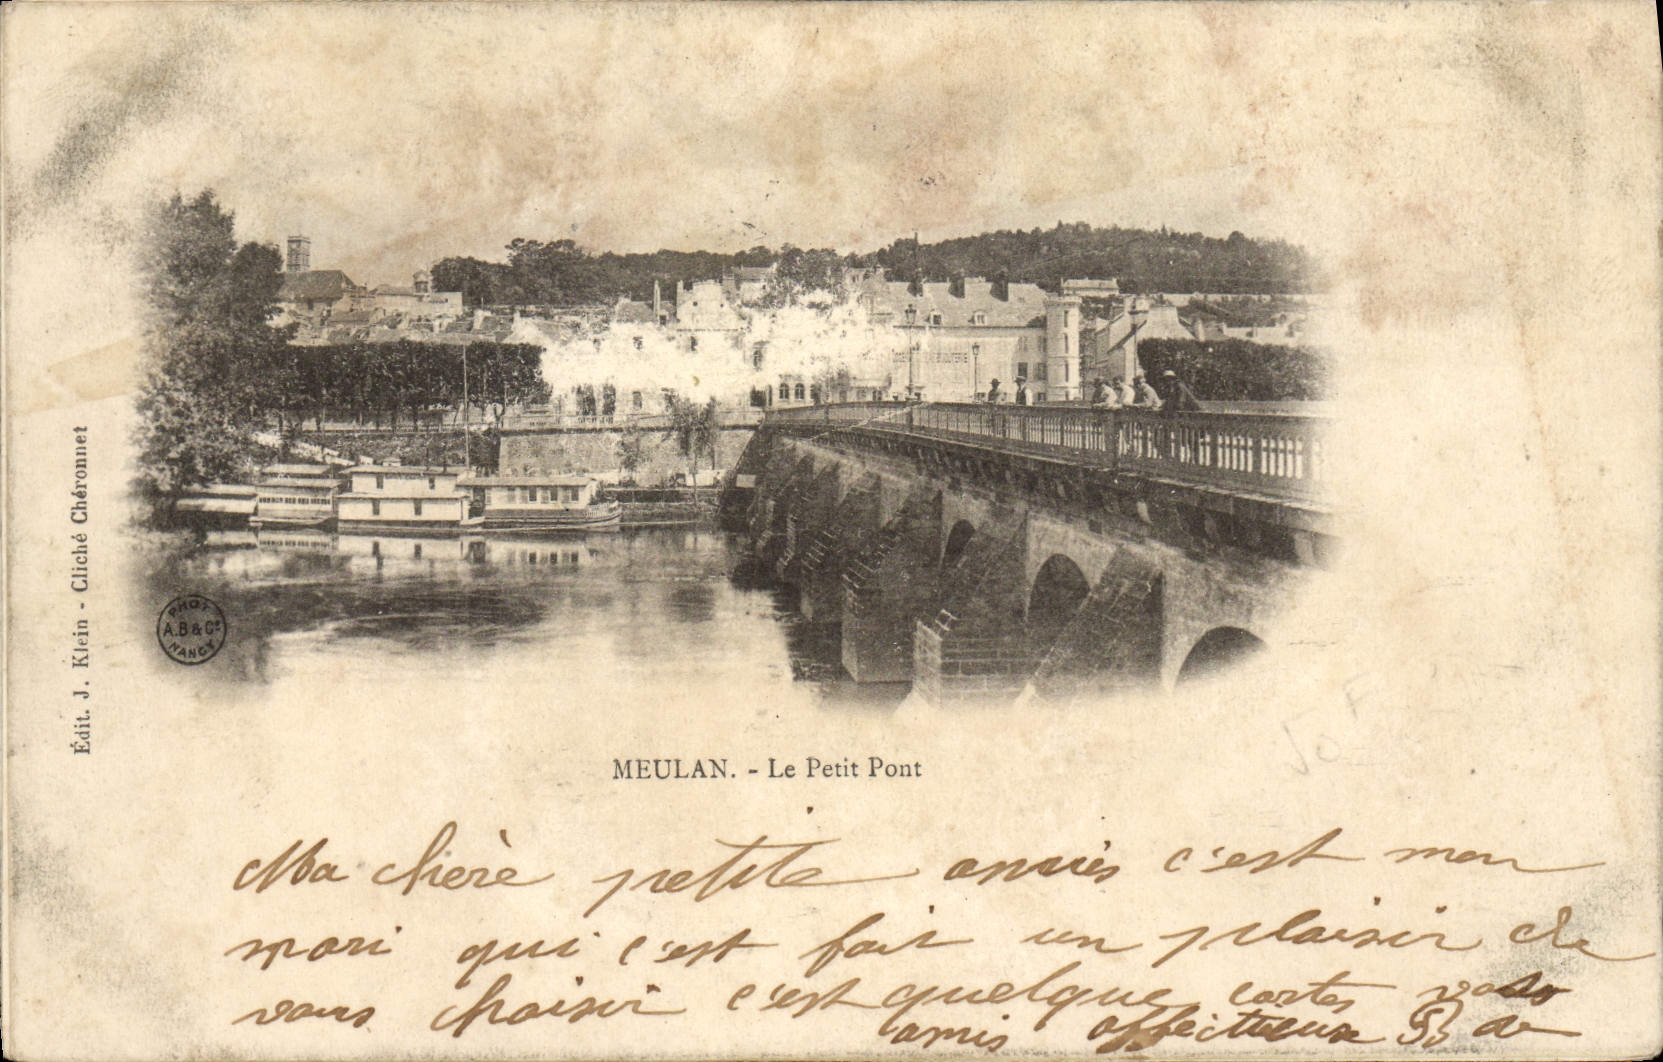 Édit. J. Klein - Cliché Chéronnet
PHOT
A.B & Cie
NANCY
MEULAN. - Le Petit Pont
Ma chère petite amies c'est mon
mari qui c'est fait un plaisir de
vous choisir c'est quelque cartes vos
amis affectueux de